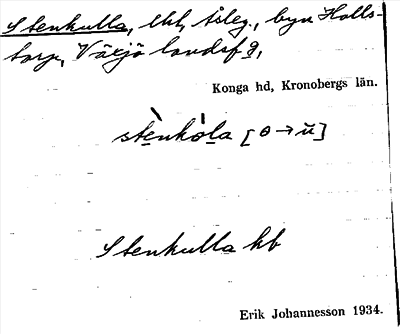 Stenkulla, lht, frlsg., byn Halls-
torp, Växjö landsf g,
Konga hd, Kronobergs län.
stènkòla [o → ŭ]
Stenkulla kb
Erik Johannesson 1934.